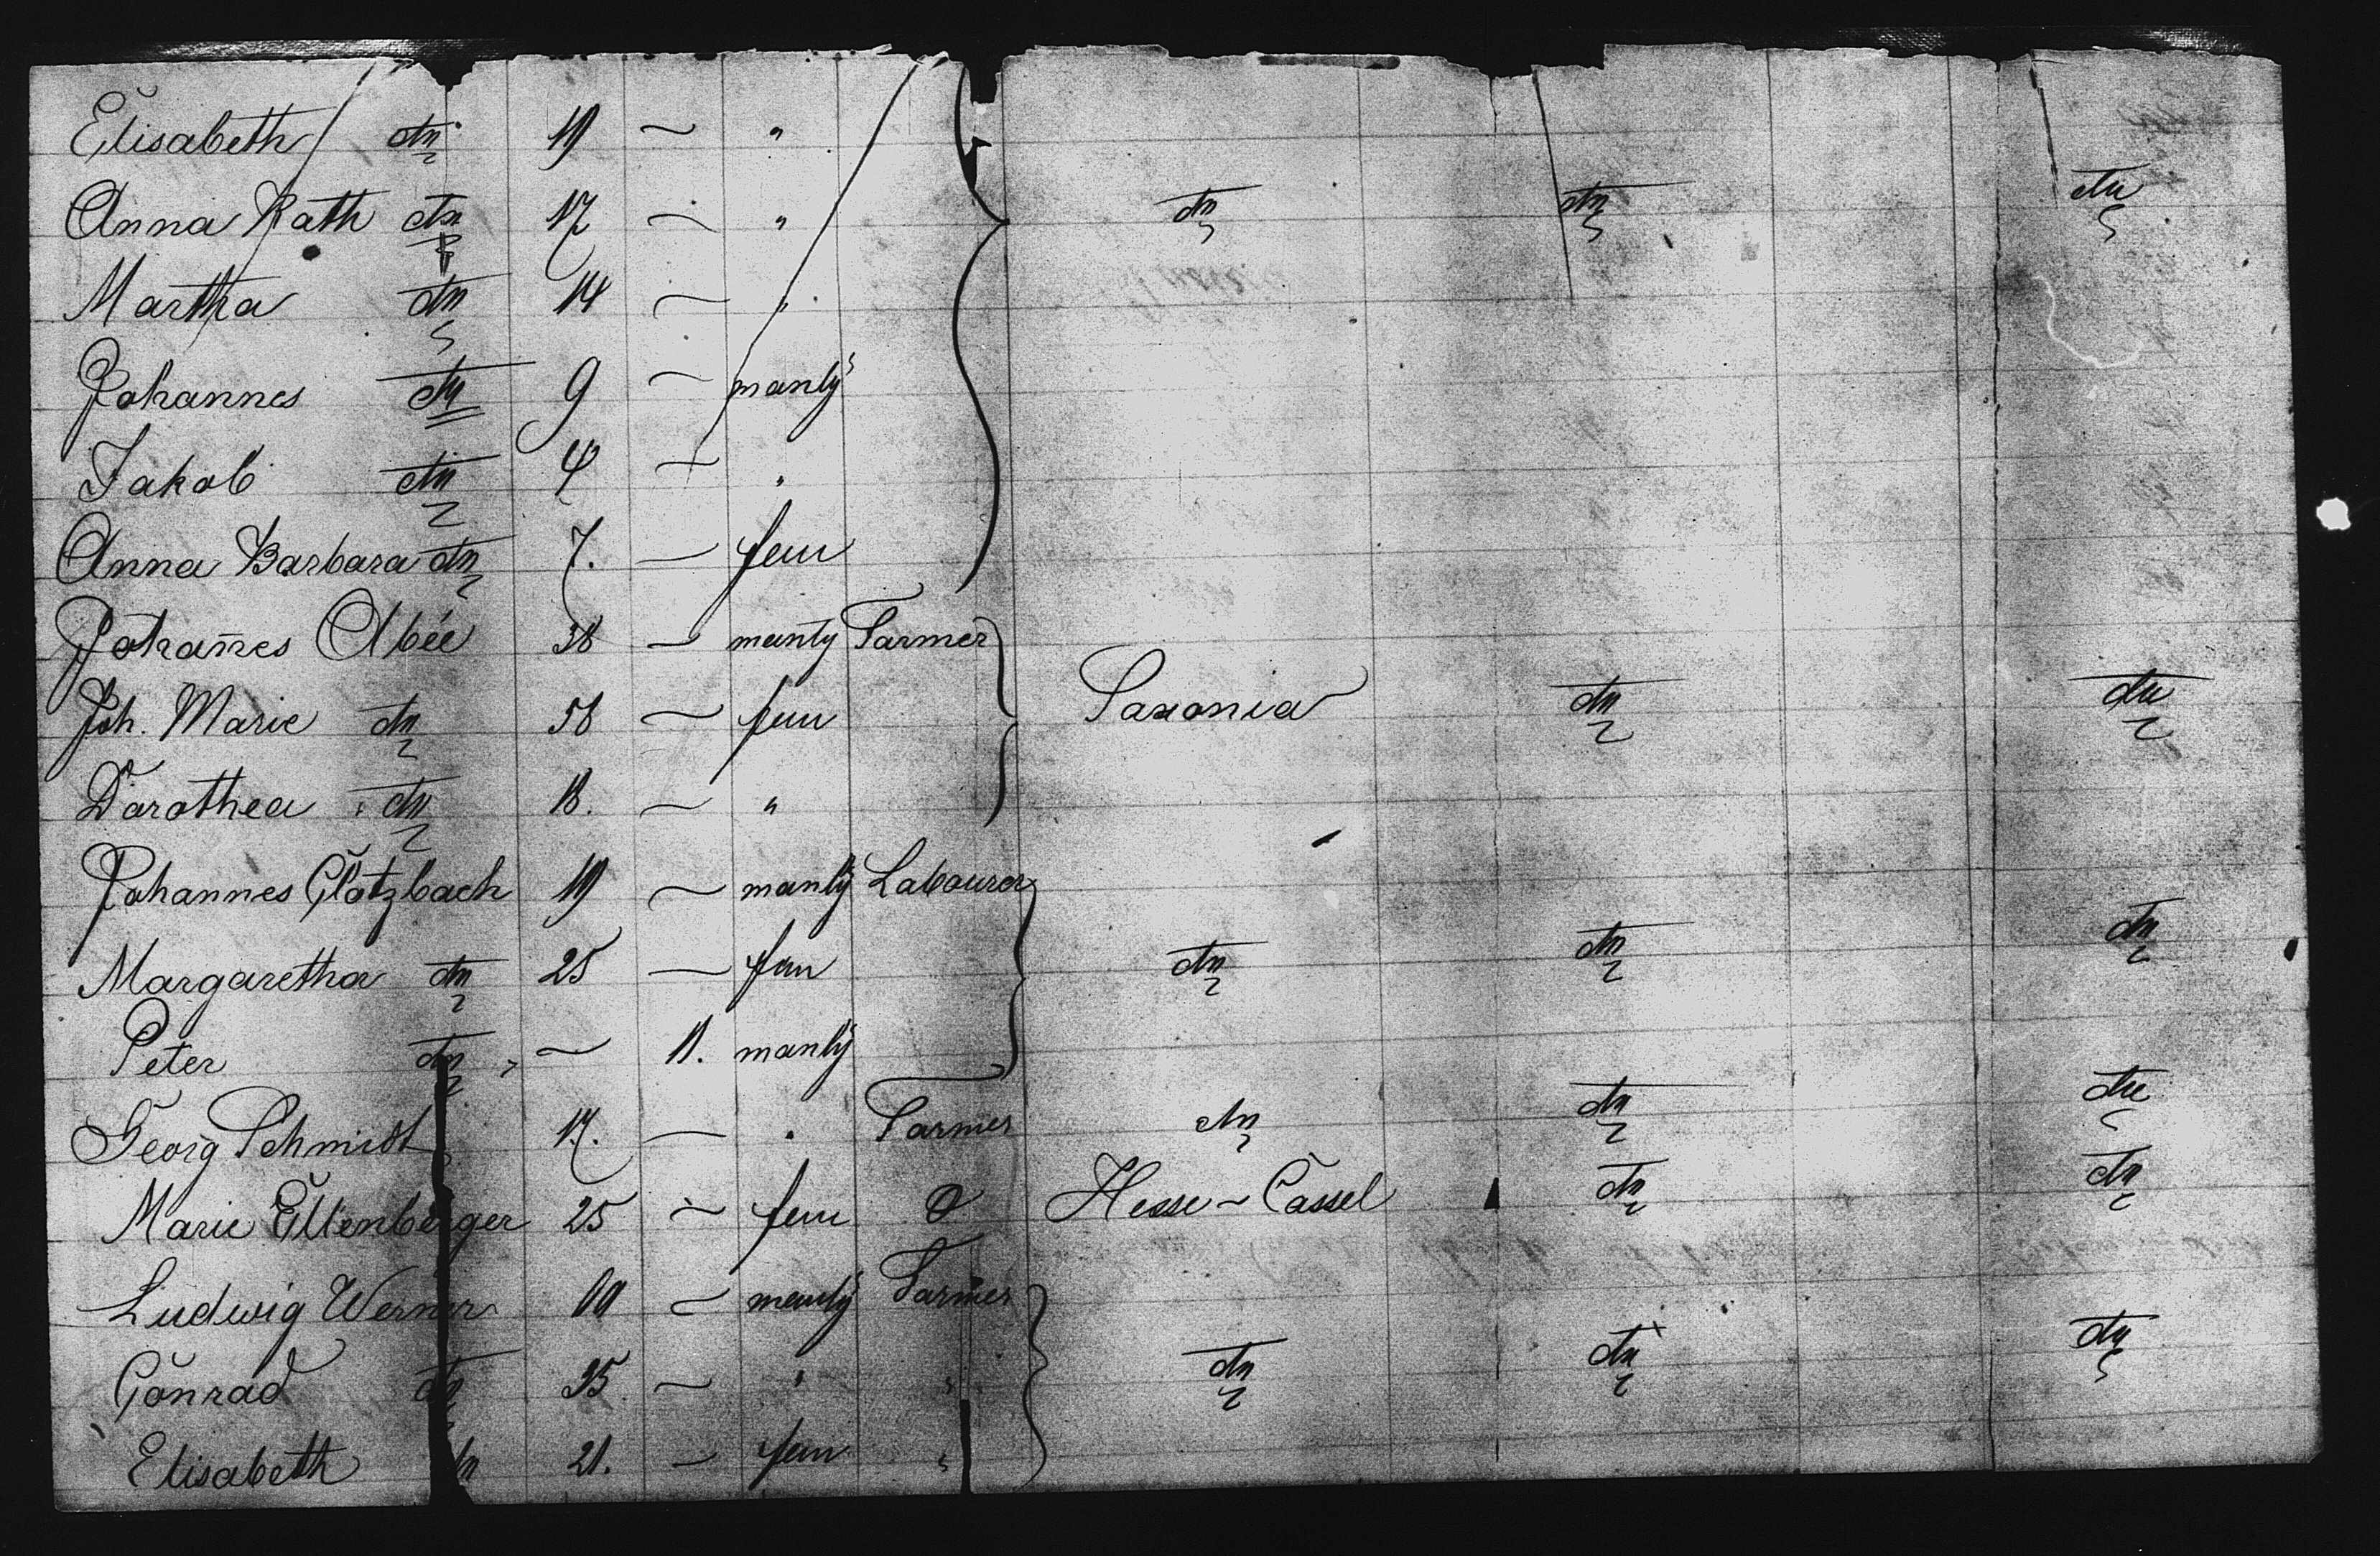 Elisabeth do 19 — "
Anna Kath do 17 — " do do do
Martha do 14 — "
Johannes do 9 — manly
Jakob do 4 — "
Anna Barbara do 7. — fem
Johañes Abée 38 — manly Farmer
Joh. Marie do 58 — fem Saxonia do do
Dorothea do 18. — "
Johannes Glotzbach 19 — manly Labourer
Margaretha do 25 — fem do do do
Peter do — 11. manly
Georg Schmidt 17. — " Farmer do do do
Marie Ellenberger 25 — fem 0 Hesse-Cassel do do
Ludwig Werner 60 — manly Farmer
Conrad do 25. — " " do do do
Elisabeth do 21. — fem "